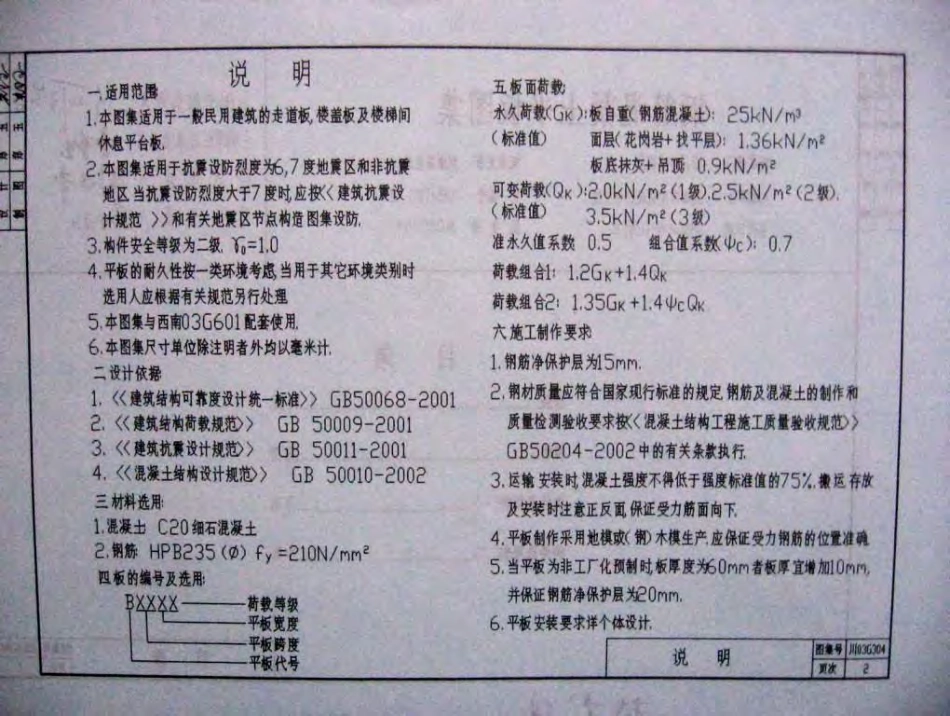 说 明
一.适用范围
1.本图集适用于一般民用建筑的走道板,楼盖板及楼梯间
休息平台板.
2.本图集适用于抗震设防烈度为6,7度地震区和非抗震
地区.当抗震设防烈度大于7度时,应按<<建筑抗震设
计规范 >>和有关地震区节点构造图集设防.
3.构件安全等级为二级. γ₀=1.0
4.平板的耐久性按一类环境考虑,当用于其它环境类别时
选用人应根据有关规范另行处理.
5.本图集与西南03G601配套使用.
6.本图集尺寸单位除注明者外均以毫米计.
二.设计依据
1.<<建筑结构可靠度设计统一标准>> GB50068-2001
2.<<建筑结构荷载规范>> GB 50009-2001
3.<<建筑抗震设计规范>> GB 50011-2001
4.<<混凝土结构设计规范>> GB 50010-2002
三.材料选用:
1.混凝土 C20细石混凝土
2.钢筋: HPB235(Φ) fy=210N/mm²
四.板的编号及选用:
BXXXX
荷载等级
平板宽度
平板跨度
平板代号
五.板面荷载:
永久荷载(GK):板自重(钢筋混凝土): 25kN/m³
(标准值) 面层(花岗岩+找平层): 1.36kN/m²
板底抹灰+吊顶: 0.9kN/m²
可变荷载(QK):2.0kN/m²(1级).2.5kN/m²(2级).
(标准值) 3.5kN/m²(3级)
准永久值系数: 0.5 组合值系数(ψc): 0.7
荷载组合1: 1.2GK+1.4QK
荷载组合2: 1.35GK+1.4ψcQK
六.施工制作要求:
1.钢筋净保护层为15mm.
2.钢材质量应符合国家现行标准的规定.钢筋及混凝土的制作和
质量检测验收要求按<<混凝土结构工程施工质量验收规范>>
GB50204-2002中的有关条款执行.
3.运输.安装时,混凝土强度不得低于强度标准值的75%.搬运.存放
及安装时注意正反面,保证受力筋面向下.
4.平板制作采用地模或(钢)木模生产.应保证受力钢筋的位置准确.
5.当平板为非工厂化预制时,板厚度为60mm者板厚宜增加10mm,
并保证钢筋净保护层为20mm.
6.平板安装要求详个体设计.
说 明
图集号 川03G304
页次 2